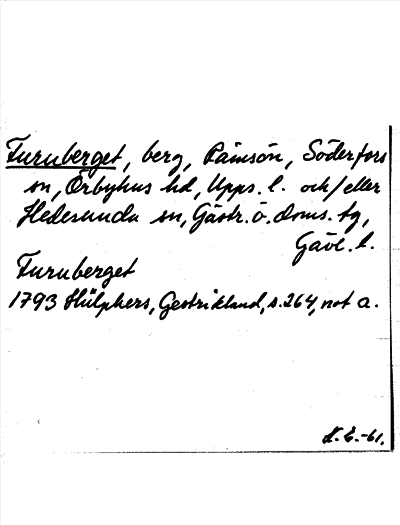 Furuberget, berg, Råmsön, Söderfors
sn, Örbyhus hd, Upps. l. och/eller
Hedesunda sn, Gästr. ö. doms. tg,
Gävl. l.
Furuberget
1793 Hülphers, Gestrikland, s. 264, not a.
K. E. -61.